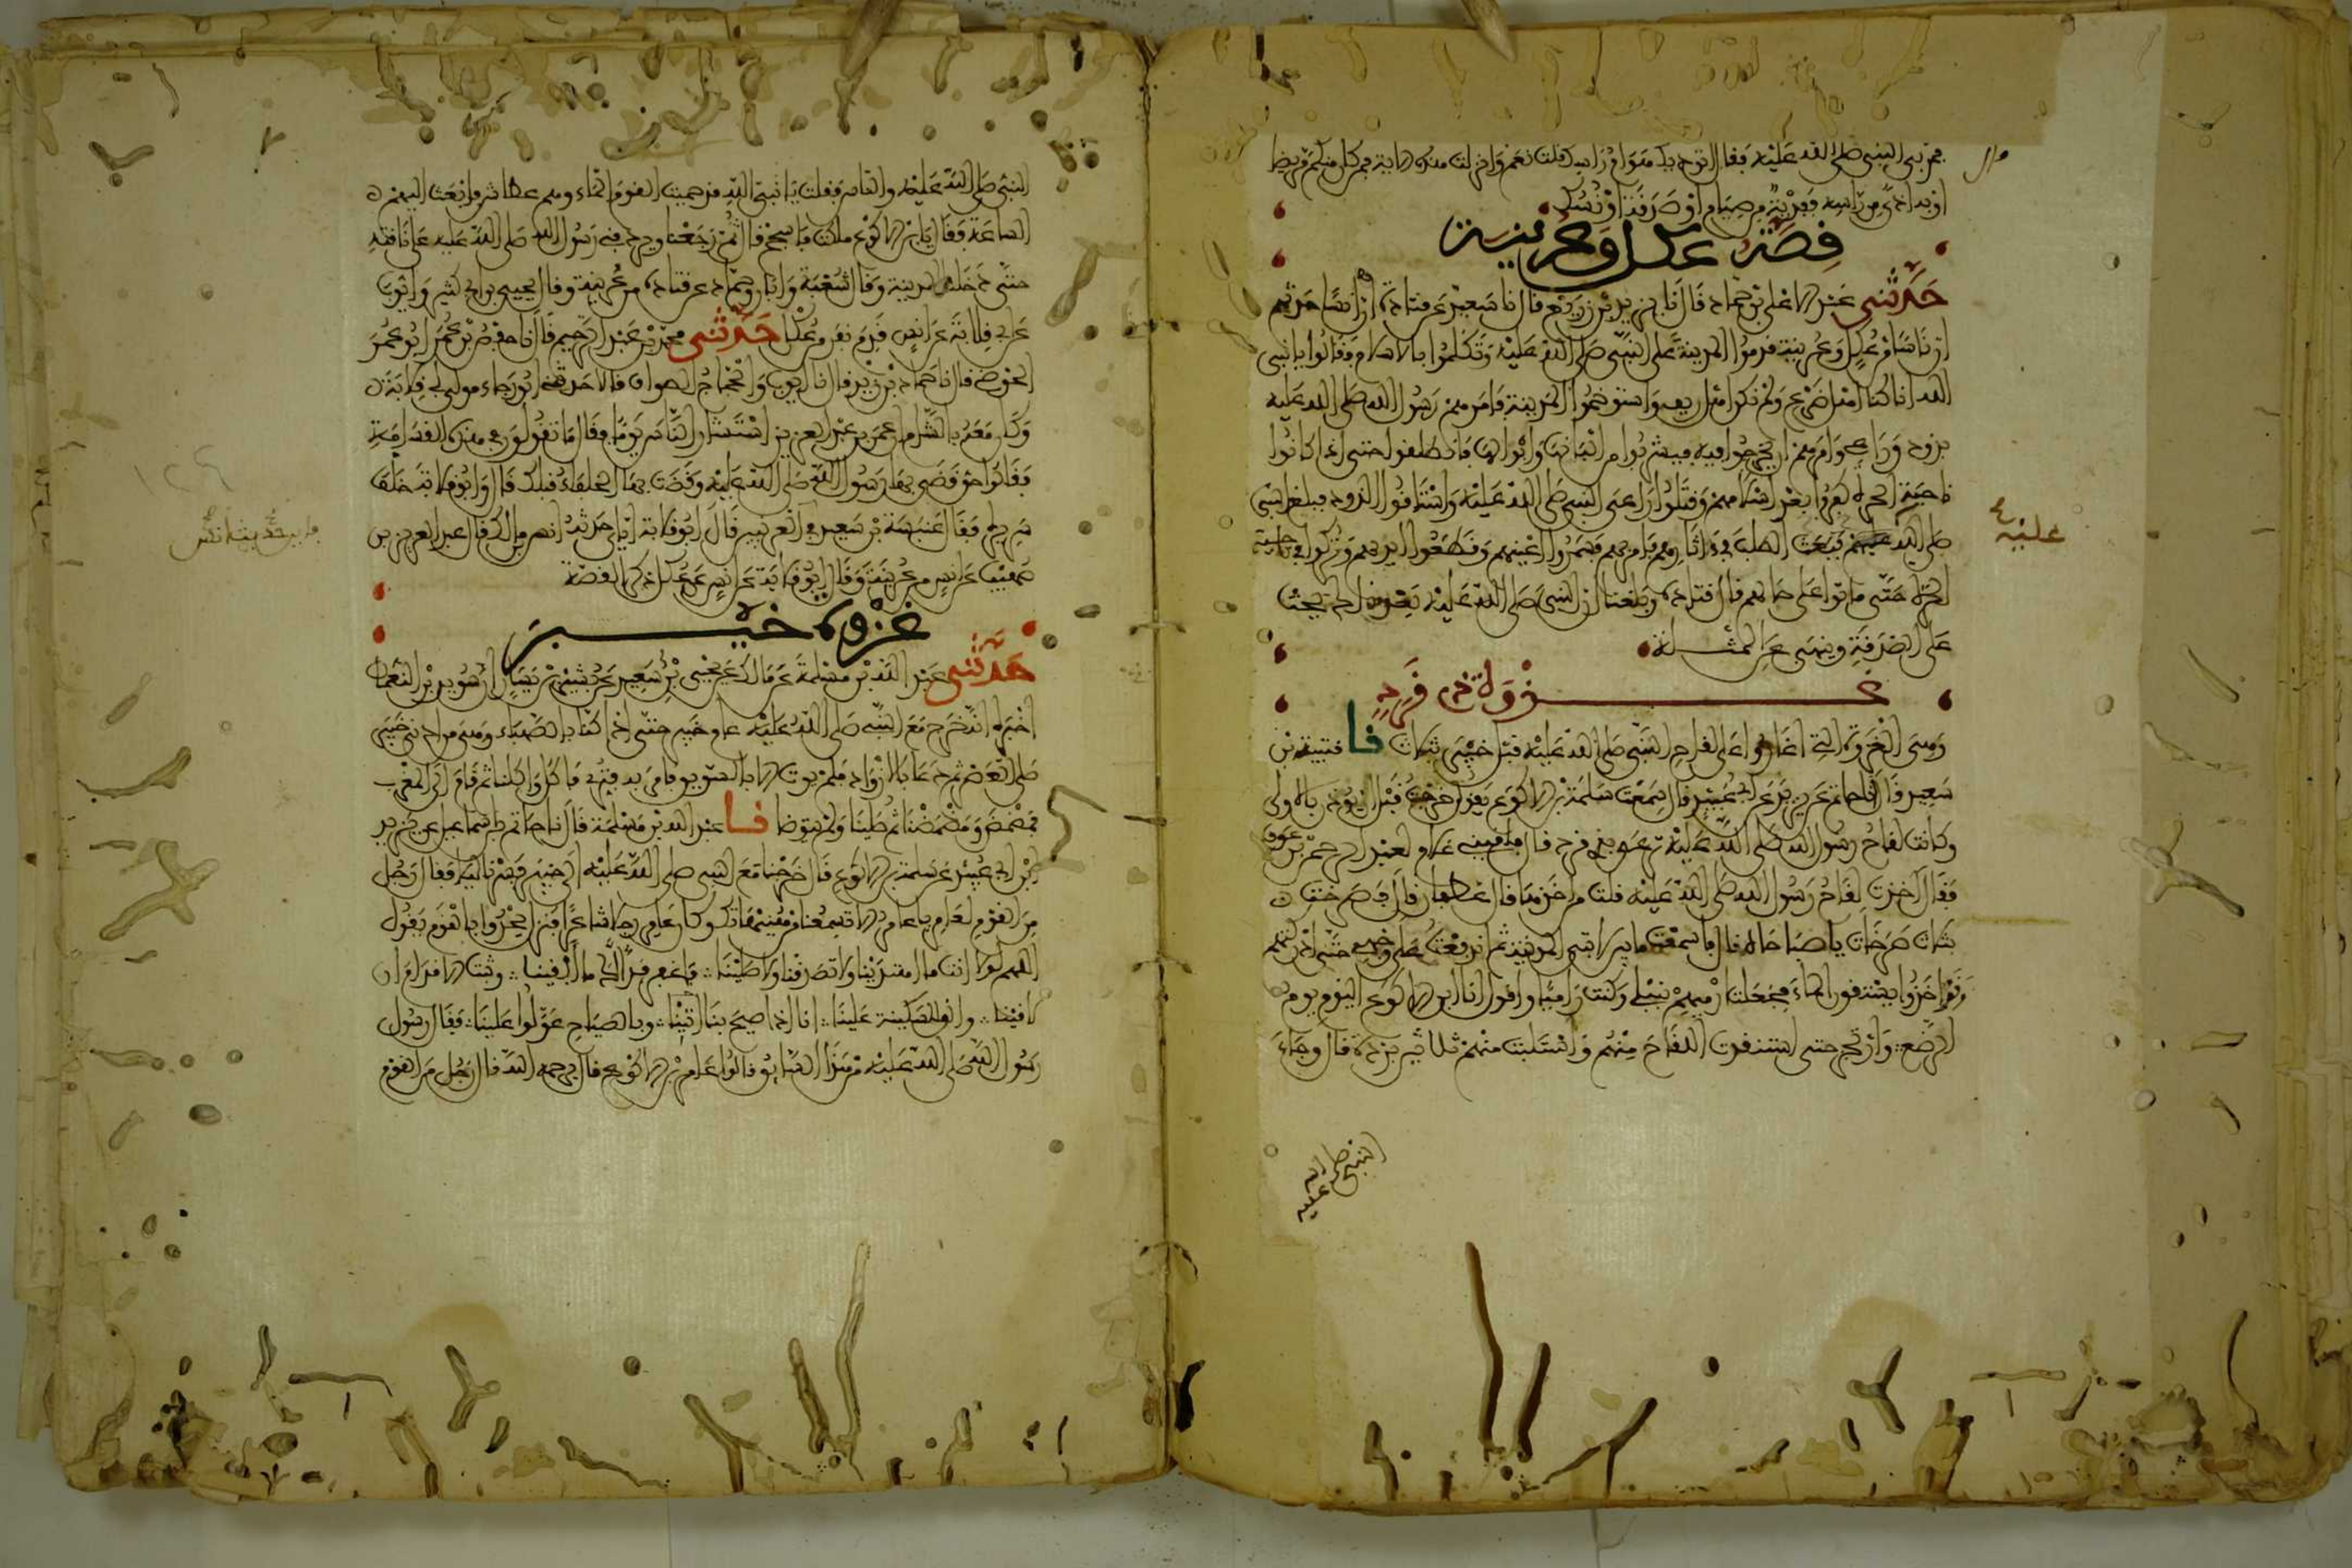 فمر بي النبي صلى الله عليه فقال اتوذيك هوام راسك قلت نعم وانزلت هذه الاية فمن كان منكم مريضا
او به اذى من راسه ففدية من صيام او صدقة او نسك
قصة عكل وعرينة
حدثني عبد الاعلى بن حماد قال نا يزيد بن زريع قال نا سعيد عن قتادة ان انسا حدثهم
ان ناسا من عكل وعرينة قدموا المدينة على النبي صلى الله عليه وتكلموا بالاسلام فقالوا يا نبي
الله انا كنا اهل ضرع ولم نكن اهل ريف واستوخموا المدينة فامر لهم رسول الله صلى الله عليه
بذود وراعي وامرهم ان يخرجوا فيه فيشربوا من البانها وابوالها فانطلقوا حتى اذا كانوا
ناحية الحرة كفروا بعد اسلامهم وقتلوا راعي النبي صلى الله عليه واستاقوا الذود فبلغ النبي
صلى الله عليه فبعث الطلب في اثارهم فامر بهم فسمروا اعينهم وقطعوا ايديهم وتركوا في ناحية
الحرة حتى ماتوا على حالهم قال قتادة وبلغنا ان النبي صلى الله عليه بعد ذلك كان يحث
على الصدقة وينهى عن المثلة
غزوة ذي قرد
وهي الغزوة التي اغاروا على لقاح النبي صلى الله عليه قبل خيبر بثلاث نا قتيبة بن
سعيد قال نا حاتم عن يزيد بن ابي عبيد قال سمعت سلمة بن الاكوع يقول خرجت قبل ان يؤذن بالاولى
وكانت لقاح رسول الله صلى الله عليه ترعى بذي قرد قال فلقيني غلام لعبد الرحمن بن عوف
فقال اخذت لقاح رسول الله صلى الله عليه قلت من اخذها قال غطفان قال فصرخت
ثلاث صرخات يا صباحاه قال فاسمعت ما بين لابتي المدينة ثم اندفعت على وجهي حتى ادركتهم
وقد اخذوا يستقون الماء فجعلت ارميهم بنبلي وكنت راميا واقول انا ابن الاكوع اليوم يوم
الرضع وارتجز حتى استنقذت اللقاح منهم واستلبت منهم ثلاثين بردة قال وجاء
النبي صلى الله عليه
النبي صلى الله عليه والناس فقلت يا نبي الله قد حميت القوم الماء وهم عطاش فابعث اليهم
الساعة فقال يا ابن الاكوع ملكت فاسجح قال ثم رجعنا ويردفني رسول الله صلى الله عليه على ناقته
حتى دخلنا المدينة وقال شعبة وابان وحماد عن قتادة من عرينة وقال يحيى بن ابي كثير وايوب
عن ابي قلابة عن انس قدم نفر من عكل حدثني محمد بن عبد الرحيم قال نا حفص بن عمر ابو عمر
الحوضي قال نا حماد بن زيد قال نا ايوب والحجاج الصواف قالا حدثني ابو رجاء مولى ابي قلابة
وكان معه بالشام ان عمر بن عبد العزيز استشار الناس يوما فقال ما تقولون في هذه القسامة
فقالوا حق قضى بها رسول الله صلى الله عليه وقضت بها الخلفاء قبلك قال وابو قلابة خلف
سريره فقال عنبسة بن سعيد فاين حديث انس في العرنيين قال ابو قلابة اياي حدثه انس بن مالك قال عبد العزيز بن
صهيب عن انس من عرينة وقال ابو قلابة عن انس من عكل ذكر القصة
غزوة خيبر
حدثني عبد الله بن مسلمة عن مالك عن يحيى بن سعيد عن بشير بن يسار ان سويد بن النعمان
اخبره انه خرج مع النبي صلى الله عليه عام خيبر حتى اذا كنا بالصهباء وهي من ادنى خيبر
صلى العصر ثم دعا بالازواد فلم يوت الا بالسويق فامر به فثري فاكل واكلنا ثم قام الى المغرب
فمضمض ومضمضنا ثم صلينا ولم يتوضا نا عبد الله بن مسلمة قال نا حاتم بن اسماعيل عن يزيد
بن ابي عبيد عن سلمة بن الاكوع قال خرجنا مع النبي صلى الله عليه الى خيبر فسرنا ليلا فقال رجل
من القوم لعامر يا عامر الا تسمعنا من هنيهاتك وكان عامر رجلا شاعرا فنزل يحدوا بالقوم يقول
اللهم لولا انت ما اهتدينا ولا تصدقنا ولا صلينا فاغفر فدا لك ما ابقينا وثبت الاقدام ان
لاقينا والقين سكينة علينا انا اذا صيح بنا اتينا وبالصياح عولوا علينا فقال رسول
رسول الله صلى الله عليه من هذا السائق قالوا عامر بن الاكوع قال يرحمه الله قال رجل من القوم